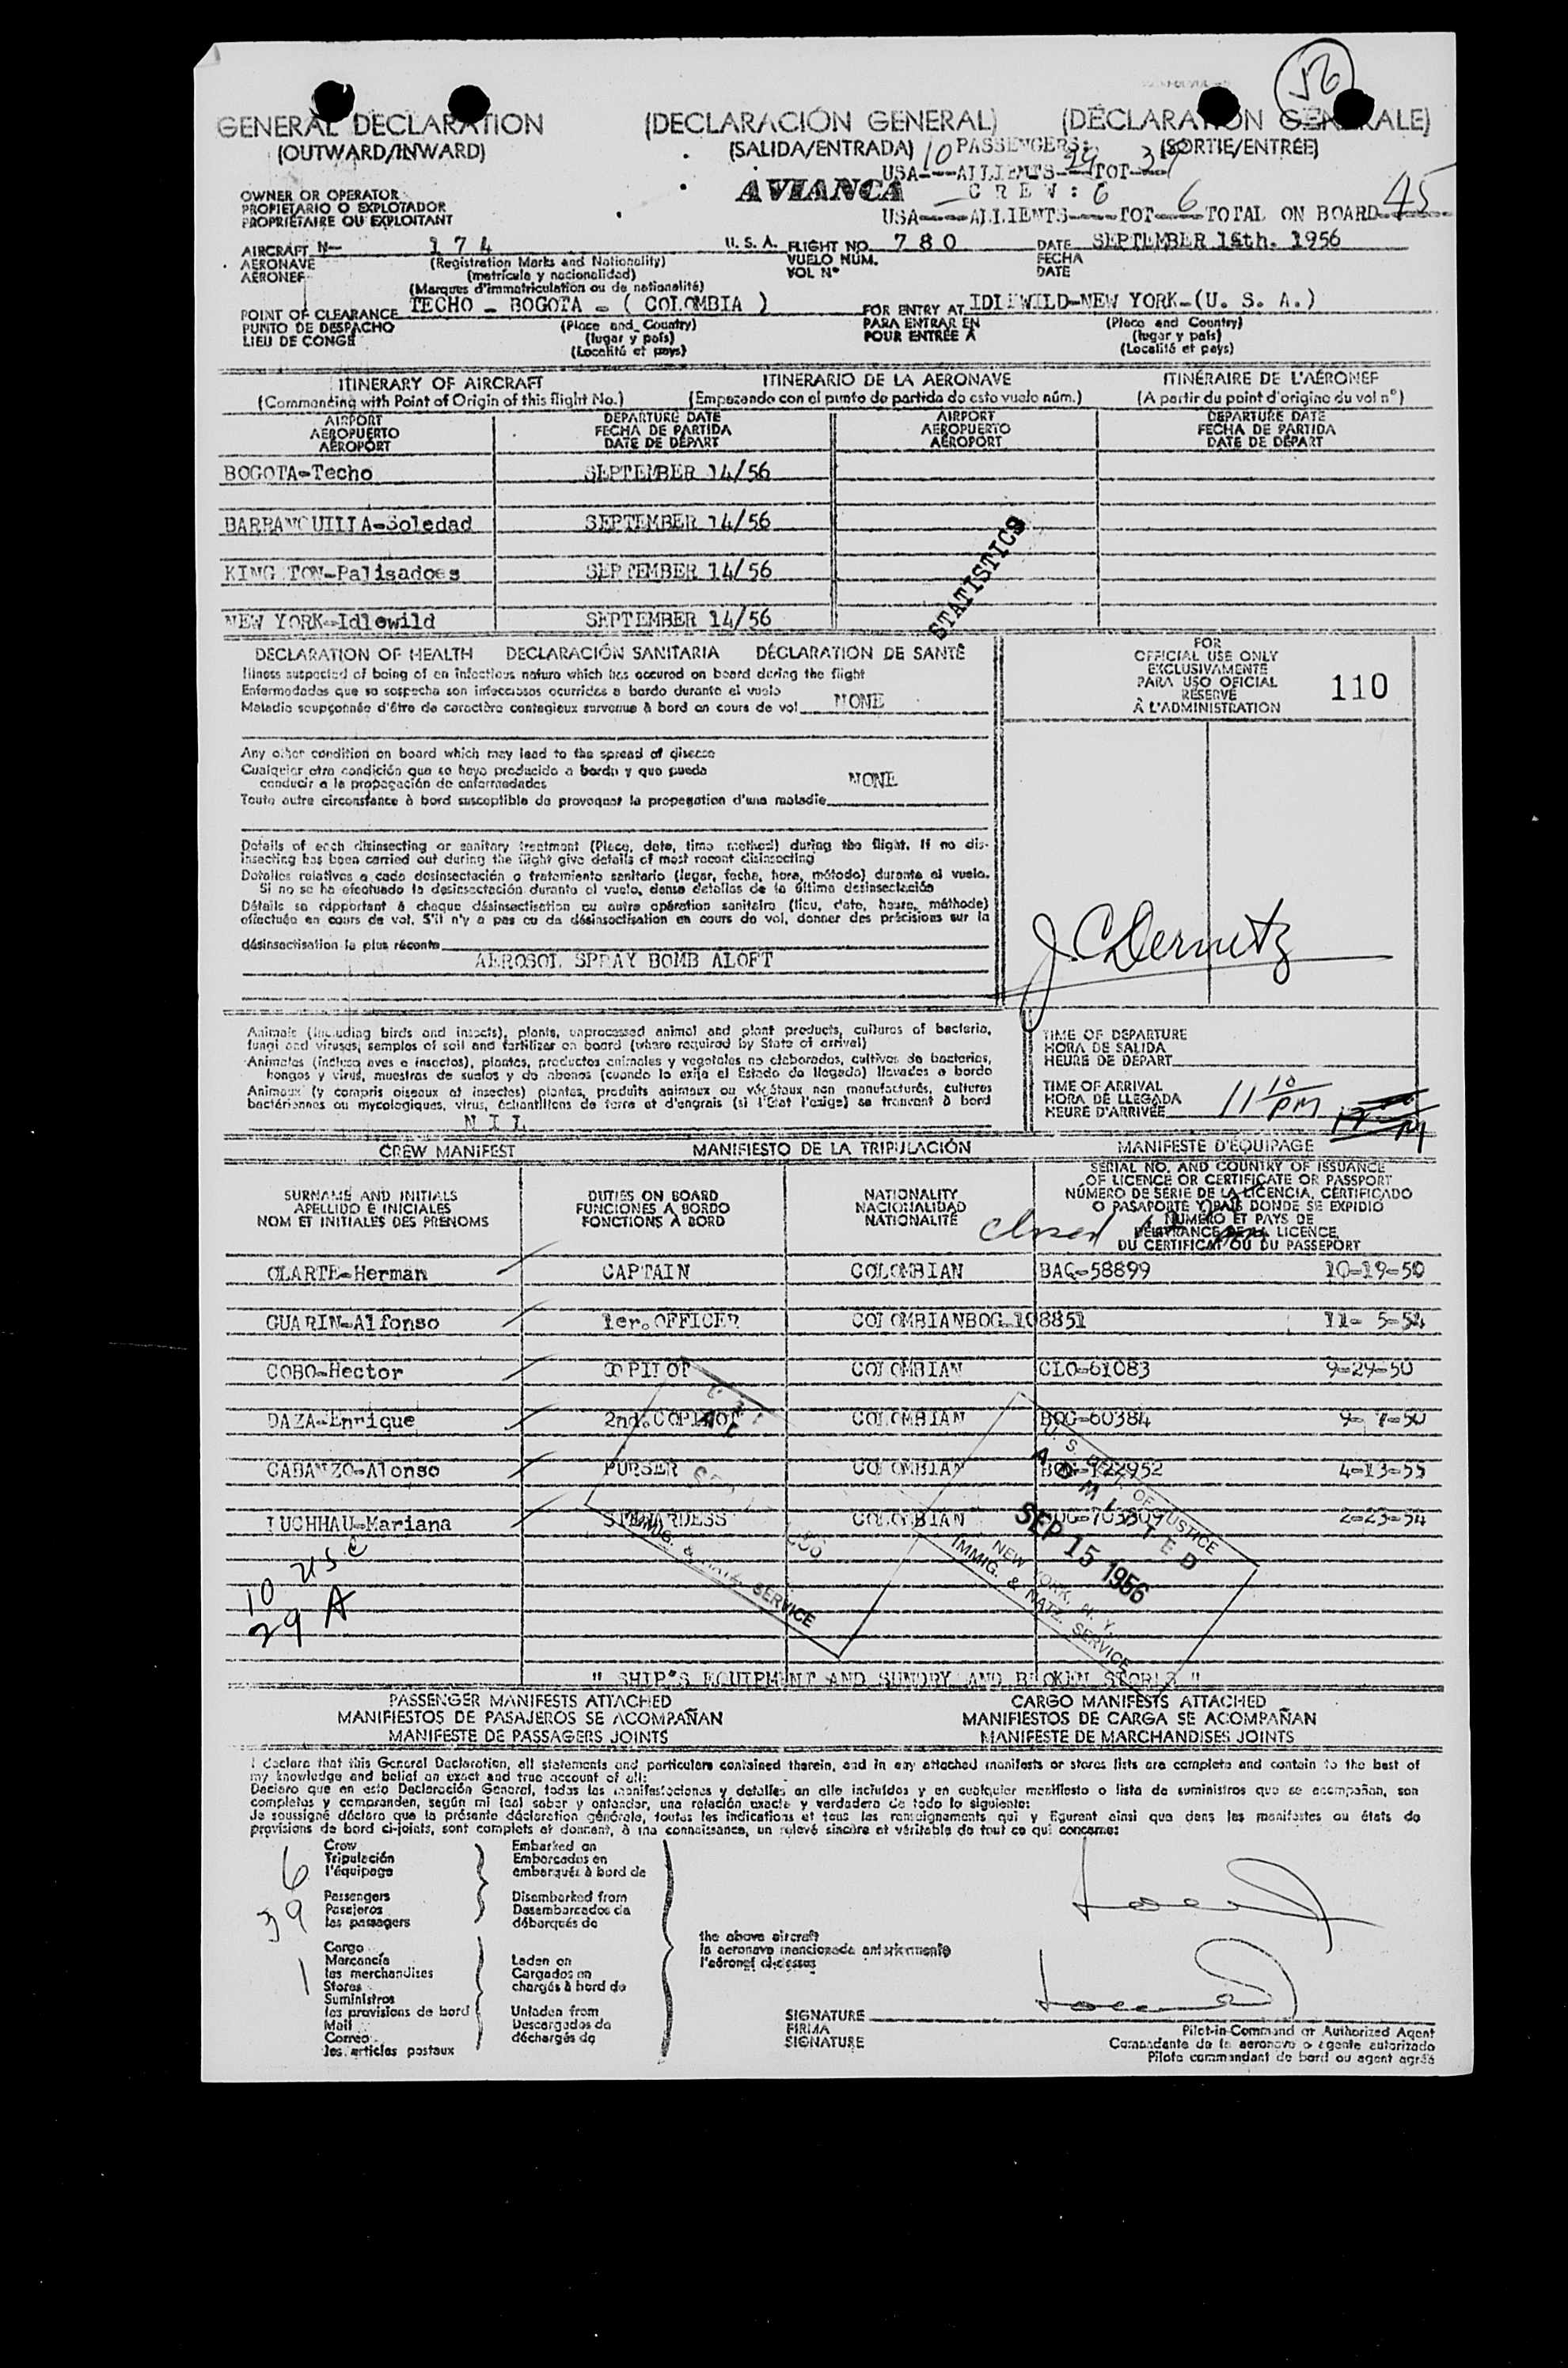 GENERAL DECLARATION (DECLARACIÓN GENERAL) (DÉCLARATION GENERALE)
(OUTWARD/INWARD) (SALIDA/ENTRADA) (SORTIE/ENTRÉE)
10 PASSENGERS: 29 39
USA----ALLIENTS----TOT----
AVIANCA
C R E W : 6
USA----ALLIENTS----TOT--6--TOTAL ON BOARD 45
OWNER OR OPERATOR
PROPIETARIO O EXPLOTADOR
PROPRIÉTAIRE OU EXPLOITANT
AIRCRAFT N- 174 U. S. A. FLIGHT NO. 780 DATE SEPTEMBER 14th. 1956
AERONAVE (Registration Marks and Nationality) VUELO NÚM. FECHA
AÉRONEF (matrícula y nacionalidad) VOL Nº DATE
(Marques d'immatriculation ou de nationalité)
POINT OF CLEARANCE TECHO - BOGOTA - ( COLOMBIA ) FOR ENTRY AT IDLEWILD-NEW YORK-(U. S. A.)
PUNTO DE DESPACHO (Place and Country) PARA ENTRAR EN (Place and Country)
LIEU DE CONGÉ (lugar y país) POUR ENTRÉE À (lugar y país)
(Localité et pays) (Localité et pays)
ITINERARY OF AIRCRAFT ITINERARIO DE LA AERONAVE ITINÉRAIRE DE L'AÉRONEF
(Commencing with Point of Origin of this flight No.) (Empezando con el punto de partida de esto vuelo núm.) (A partir du point d'origine du vol nº)
AIRPORT DEPARTURE DATE AIRPORT DEPARTURE DATE
AEROPUERTO FECHA DE PARTIDA AEROPUERTO FECHA DE PARTIDA
AÉROPORT DATE DE DÉPART AÉROPORT DATE DE DÉPART
BOGOTA-Techo SEPTEMBER 14/56
BARRANQUILLA-Soledad SEPTEMBER 14/56
KINGSTON-Palisadoes SEPTEMBER 14/56
NEW YORK-Idlewild SEPTEMBER 14/56
STATISTICS
DECLARATION OF HEALTH DECLARACIÓN SANITARIA DÉCLARATION DE SANTÉ
Illness suspected of being of an infectious nature which has occured on board during the flight
Enfermedades que se sospecha son infecciosas ocurridas a bordo durante el vuelo
Maladie soupçonnée d'être de caractère contagieux survenue à bord en cours de vol NONE
FOR
OFFICIAL USE ONLY
EXCLUSIVAMENTE
PARA USO OFICIAL
RÉSERVÉ
À L'ADMINISTRATION
110
Any other condition on board which may lead to the spread of disease
Cualquier otra condición que se haya producido a bordo y que pueda
conducir a la propagación de enfermedades NONE
Toute autre circonstance à bord susceptible de provoquer la propagation d'une maladie
Details of each disinsecting or sanitary treatment (Place, date, time method) during the flight. If no dis-
insecting has been carried out during the flight give details of most recent disinsecting
Detalles relativos a cada desinsectación o tratamiento sanitario (lugar, fecha, hora, método) durante el vuelo.
Si no se ha efectuado la desinsectación durante el vuelo, dense detalles de la última desinsectación
Détails se rapportant à chaque désinsectisation ou autre opération sanitaire (lieu, date, heure, méthode)
effectuée en cours de vol. S'il n'y a pas eu de désinsectisation en cours de vol, donner des précisions sur la
désinsectisation la plus récente
AEROSOL SPRAY BOMB ALOFT
Animals (including birds and insects), plants, unprocessed animal and plant products, cultures of bacteria,
fungi and viruses, samples of soil and fertilizer on board (where required by State of arrival)
Animales (incluso aves e insectos), plantas, productos animales y vegetales no elaborados, cultivos de bacterias,
hongos y virus, muestras de suelos y de abonos (cuando lo exija el Estado de llegada) llevados a bordo
Animaux (y compris oiseaux et insectes) plantes, produits animaux ou végétaux non manufacturés, cultures
bactériennes ou mycologiques, virus, échantillons de terre et d'engrais (si l'État l'exige) se trouvant à bord
N I L
TIME OF DEPARTURE
HORA DE SALIDA
HEURE DE DÉPART
TIME OF ARRIVAL
HORA DE LLEGADA
HEURE D'ARRIVÉE 11 10 PM
CREW MANIFEST MANIFIESTO DE LA TRIPULACIÓN MANIFESTE D'ÉQUIPAGE
SURNAME AND INITIALS DUTIES ON BOARD NATIONALITY SERIAL NO. AND COUNTRY OF ISSUANCE
APELLIDO E INICIALES FUNCIONES A BORDO NACIONALIDAD OF LICENCE OR CERTIFICATE OR PASSPORT
NOM ET INITIALES DES PRÉNOMS FONCTIONS À BORD NATIONALITÉ NÚMERO DE SERIE DE LA LICENCIA, CERTIFICADO
O PASAPORTE Y PAÍS DONDE SE EXPIDIÓ
NUMÉRO ET PAYS DE
DÉLIVRANCE DE LA LICENCE,
DU CERTIFICAT OU DU PASSEPORT
closed
OLARTE-Herman CAPTAIN COLOMBIAN BAQ-58899 10-19-50
GUARIN-Alfonso 1er.OFFICER COLOMBIAN BOG 108851 11- 5-54
COBO-Hector COPILOT COLOMBIAN CLO-61083 9-29-50
DAZA-Enrique 2nd.COPILOT COLOMBIAN BOG-60384 9- 7-50
CABANZO-Alonso PURSER COLOMBIAN BOG-122952 4-13-55
LUCHHAU-Mariana STEWARDESS COLOMBIAN 2-23-54
U. S. DEPT. OF JUSTICE
ADMITTED
SEP 15 1956
NEW YORK, N. Y.
IMMIG. & NATZ. SERVICE
IMMIG. & NATZ. SERVICE
10 USC
29 A
" SHIP'S EQUIPMENT AND SUNDRY AND BROKEN STORES "
PASSENGER MANIFESTS ATTACHED CARGO MANIFESTS ATTACHED
MANIFIESTOS DE PASAJEROS SE ACOMPAÑAN MANIFIESTOS DE CARGA SE ACOMPAÑAN
MANIFESTE DE PASSAGERS JOINTS MANIFESTE DE MARCHANDISES JOINTS
I declare that this General Declaration, all statements and particulars contained therein, and in any attached manifests or stores lists are complete and contain to the best of
my knowledge and belief an exact and true account of all:
Declaro que en esta Declaración General, todas las manifestaciones y detalles en ella incluídos y en cualquier manifiesto o lista de suministros que se acompañan, son
completos y comprenden, según mi leal saber y entender, una relación exacta y verdadera de todo lo siguiente:
Je soussigné déclare que la présente déclaration générale, toutes les indications et tous les renseignements qui y figurent ainsi que dans les manifestes ou états de
provisions de bord ci-joints, sont complets et donnent, à ma connaissance, un relevé sincère et véritable de tout ce qui concerne:
6 Crew Embarked on
Tripulación Embarcados en
l'équipage embarqués à bord de
39 Passengers Disembarked from
Pasajeros Desembarcados de
les passagers débarqués de
the above aircraft
la aeronave mencionada anteriormente
l'aéronef ci-dessus
1 Cargo Laden on
Mercancía Cargados en
les merchandises chargés à bord de
Stores
Suministros
les provisions de bord Unladen from
Mail Descargados de
Correo déchargés de
les articles postaux
SIGNATURE
FIRMA
SIGNATURE
Pilot-in-Command or Authorized Agent
Comandante de la aeronave o agente autorizado
Pilote commandant de bord ou agent agréé